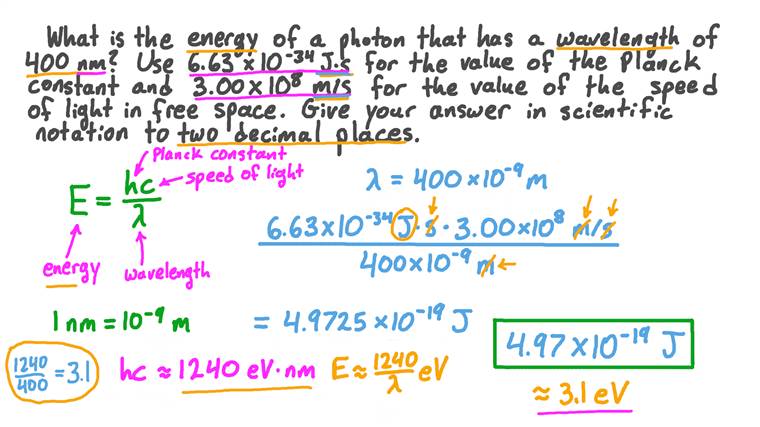 What is the energy of a photon that has a wavelength of
400 nm? Use 6.63×10⁻³⁴ J·s for the value of the Planck
constant and 3.00×10⁸ m/s for the value of the speed
of light in free space. Give your answer in scientific
notation to two decimal places.
Planck constant
speed of light
E = hc/λ
energy
wavelength
λ = 400×10⁻⁹ m
6.63×10⁻³⁴ J·s · 3.00×10⁸ m/s
400×10⁻⁹ m
1 nm = 10⁻⁹ m
= 4.9725×10⁻¹⁹ J
4.97×10⁻¹⁹ J
1240/400 = 3.1
hc ≈ 1240 eV·nm
E ≈ 1240/λ eV
≈ 3.1 eV